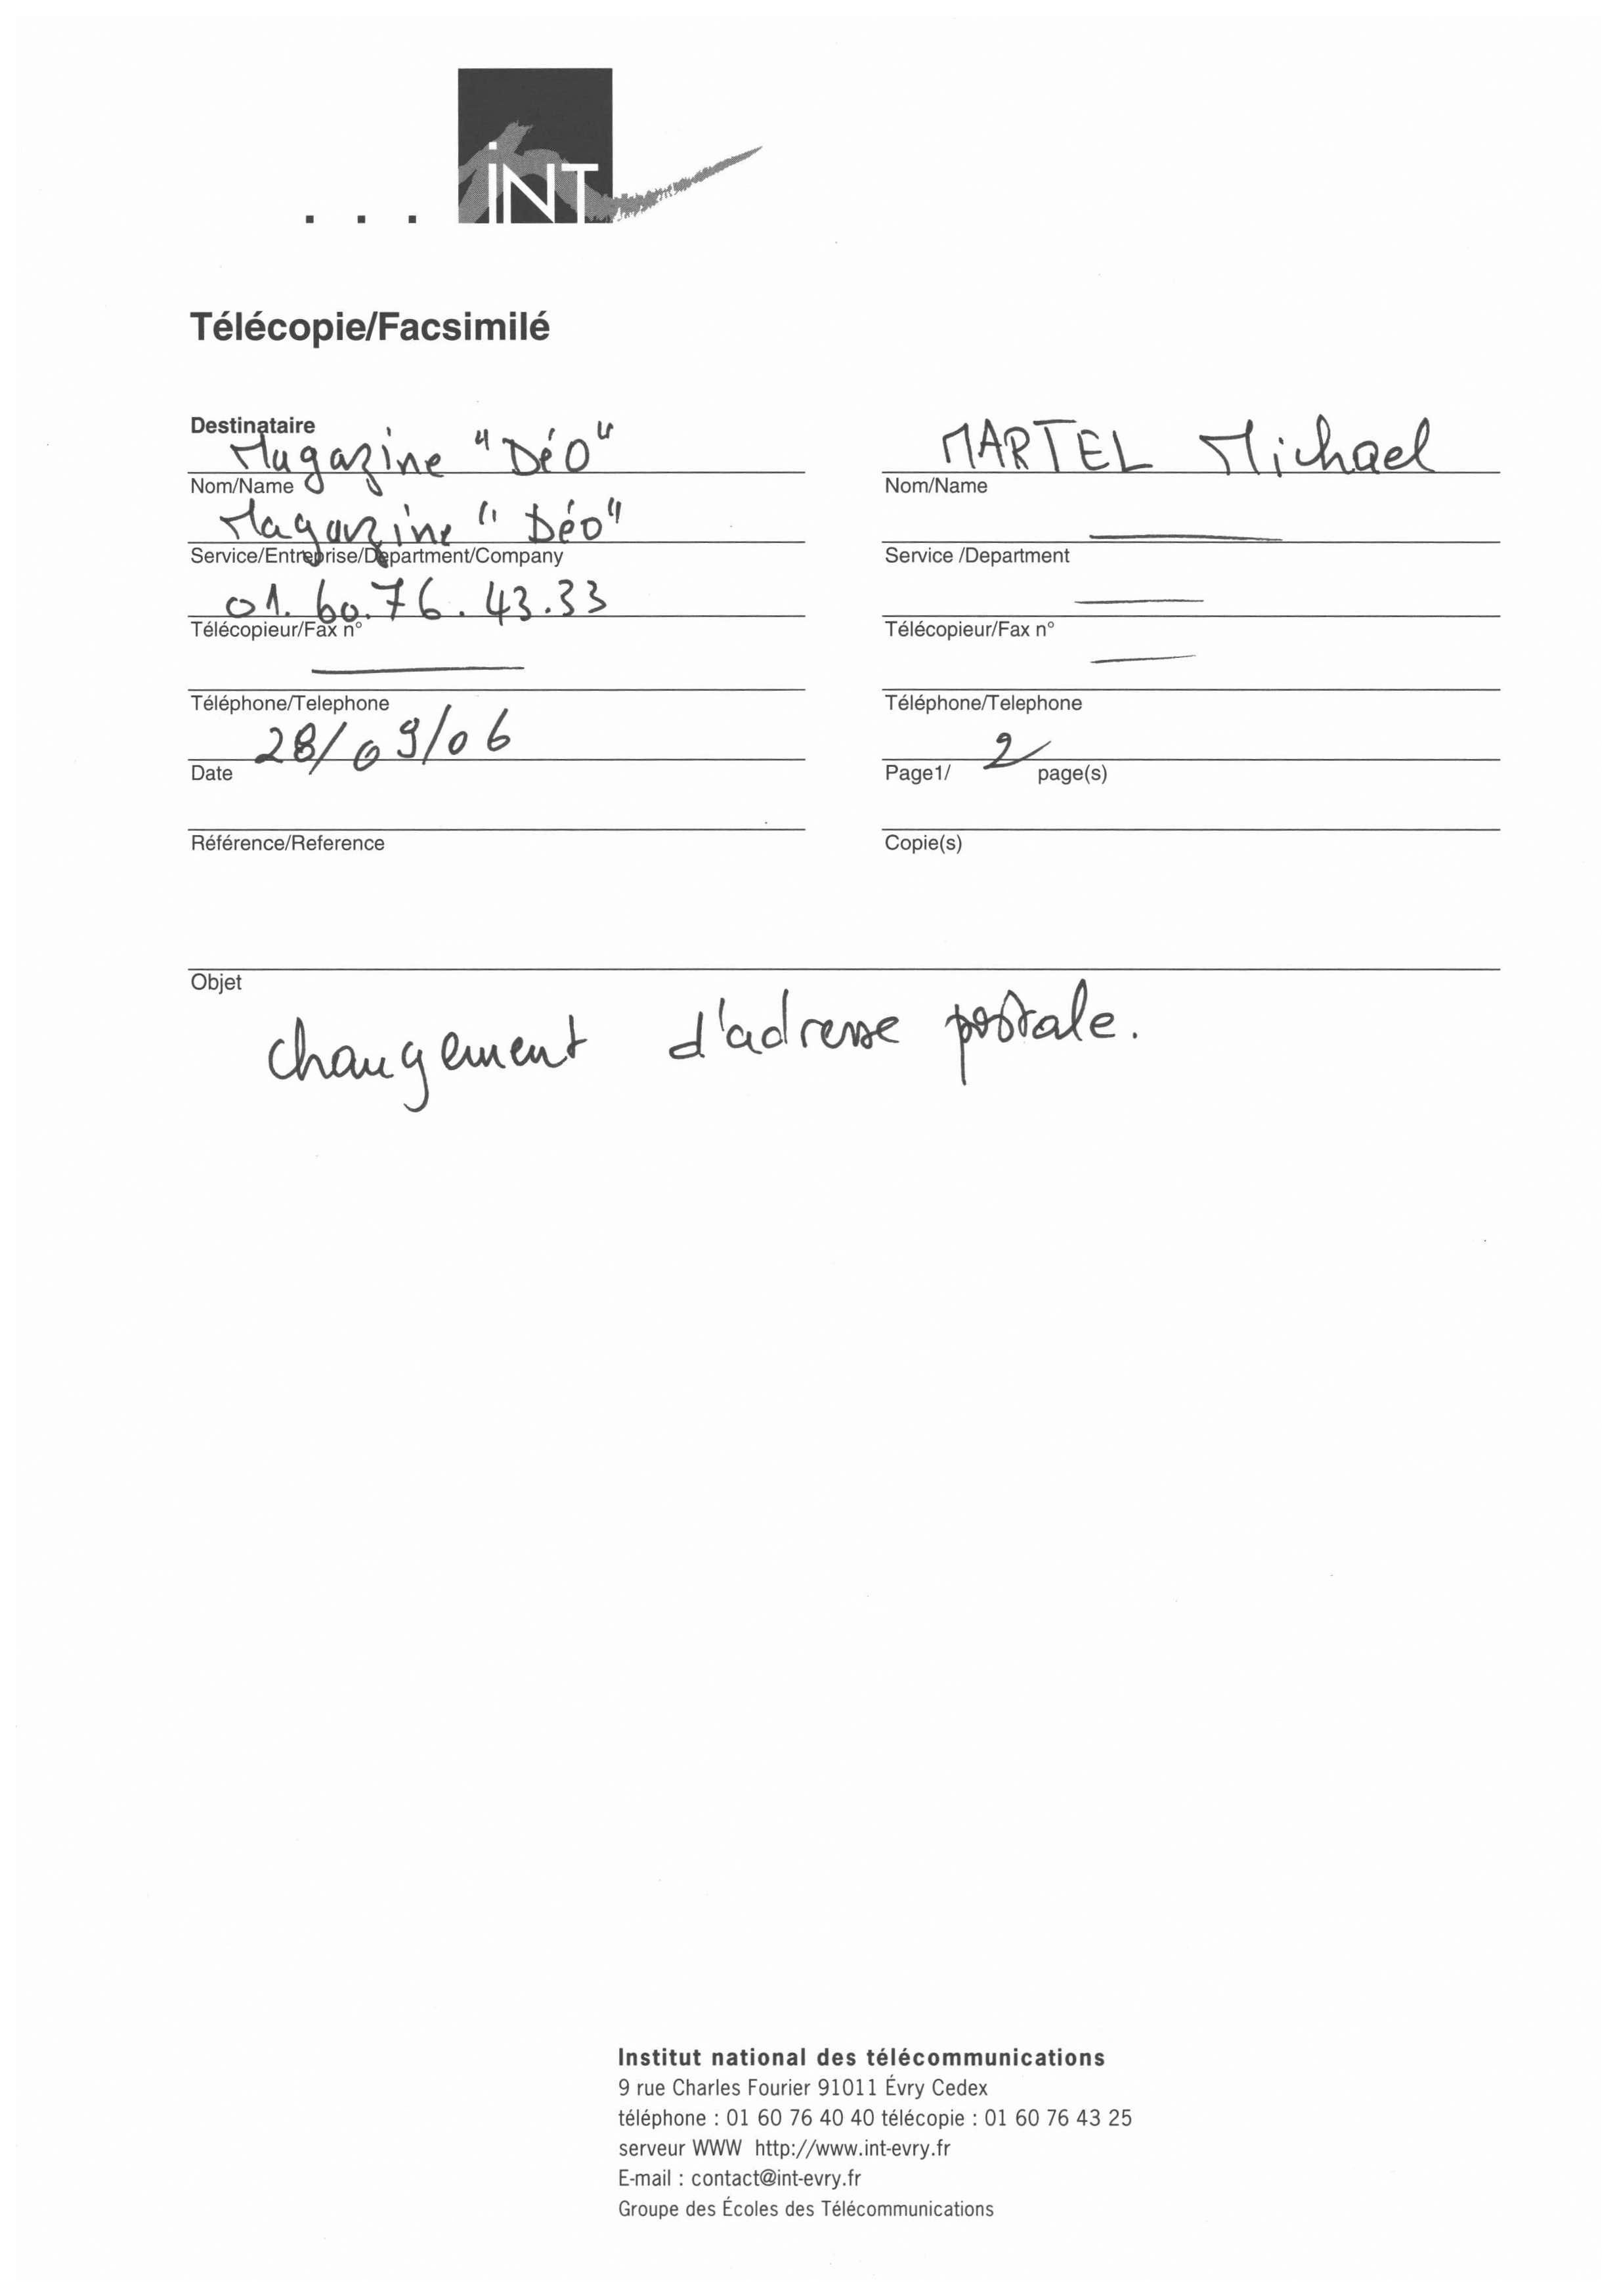 ... iNT
Télécopie/Facsimilé
Destinataire
Magazine "Déo"
Nom/Name
Magazine "Déo"
Service/Entreprise/Department/Company
01.60.76.43.33
Télécopieur/Fax n°
Téléphone/Telephone
28/09/06
Date
Référence/Reference
MARTEL Michael
Nom/Name
Service /Department
Télécopieur/Fax n°
Téléphone/Telephone
Page1/ 2 page(s)
Copie(s)
Objet
changement d'adresse postale.
Institut national des télécommunications
9 rue Charles Fourier 91011 Évry Cedex
téléphone : 01 60 76 40 40 télécopie : 01 60 76 43 25
serveur WWW http://www.int-evry.fr
E-mail : contact@int-evry.fr
Groupe des Écoles des Télécommunications